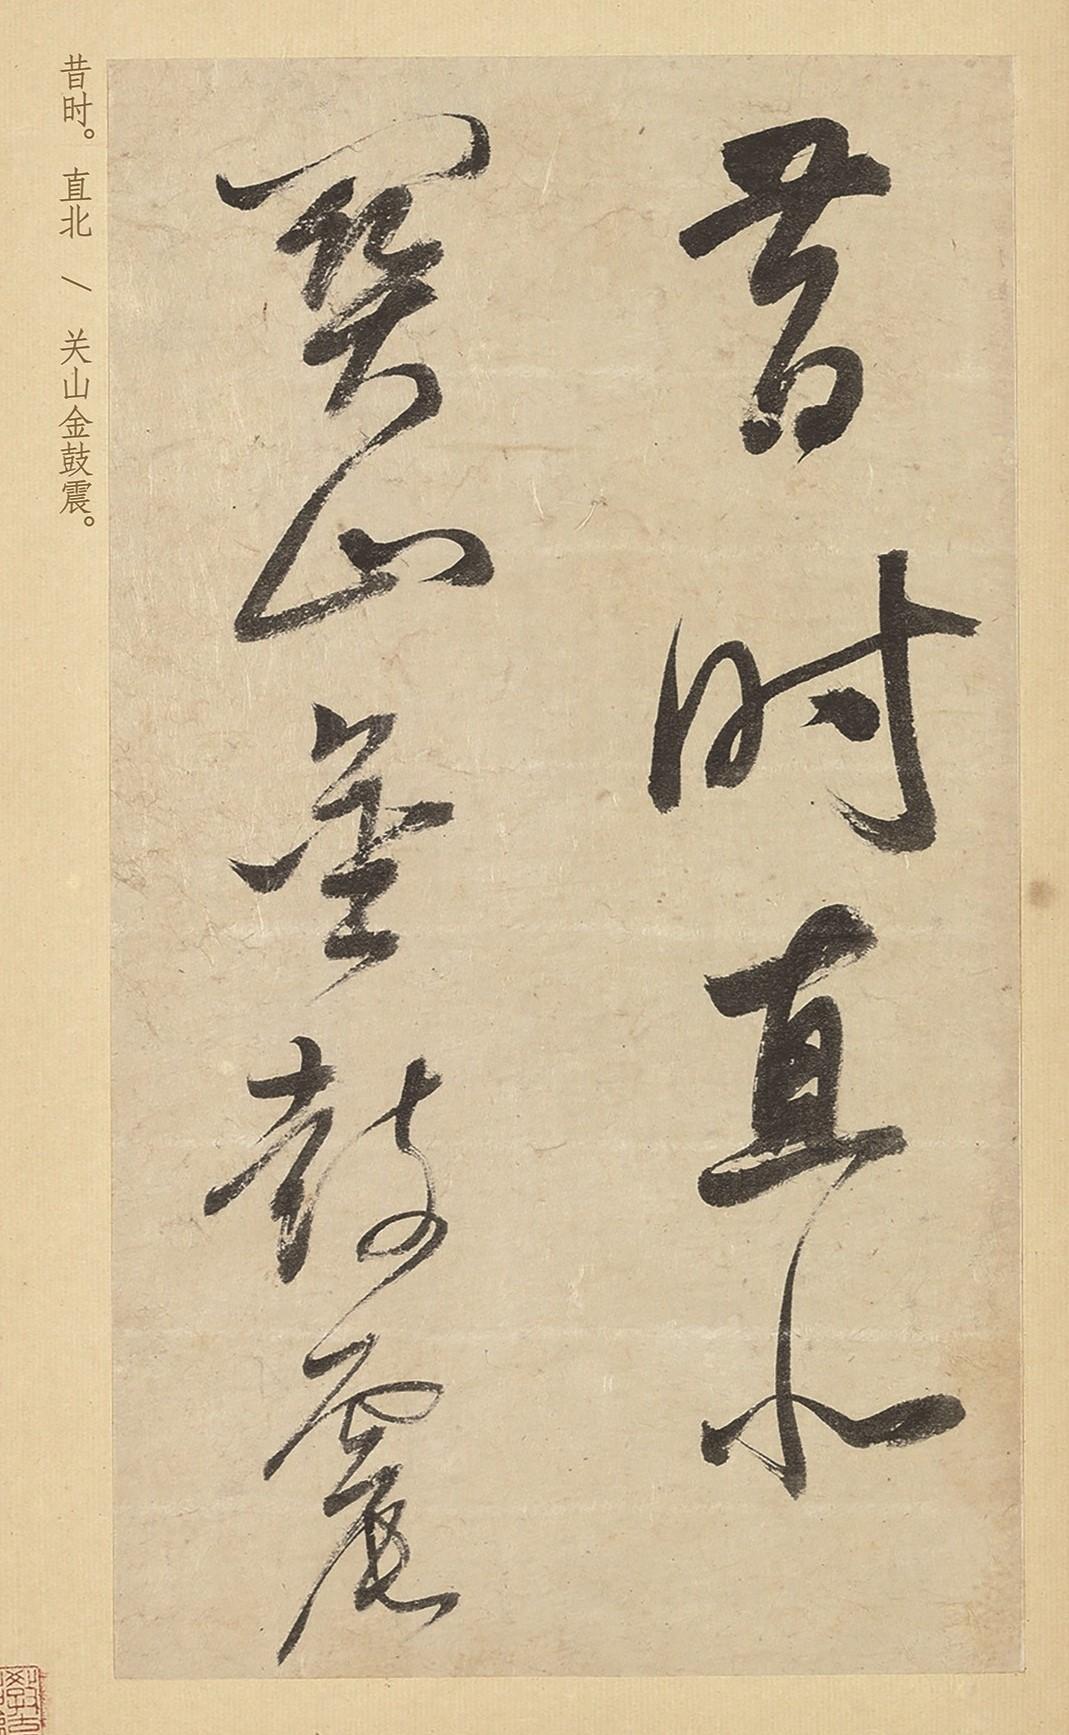 昔时直北
關山金鼓震
昔时。直北 \ 关山金鼓震。